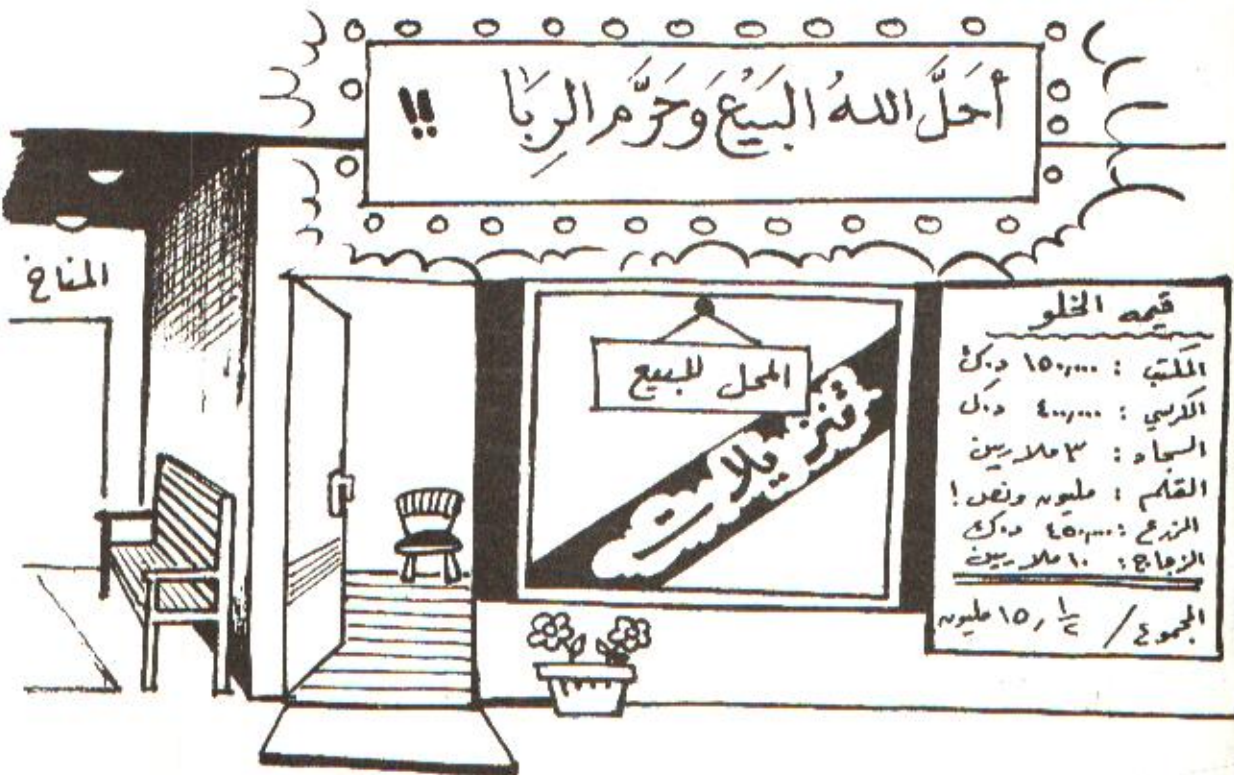 أَحَلَّ اللهُ البَيْعَ وَحَرَّمَ الرِبَا !!
المناخ
المحل للبيع
تنزيلات
قيمه الخلو
المكتب : ١٥٠,٠٠٠ د.ك
الكرسي : ٤٠٠,٠٠٠ د.ك
السجاد : ٣ ملايين
القلم : مليون ونص !
الزرع : ٤٥٠,٠٠٠ د.ك
الزجاج : ١٠ ملايين
المجموع / ١٥,١/٢ مليون